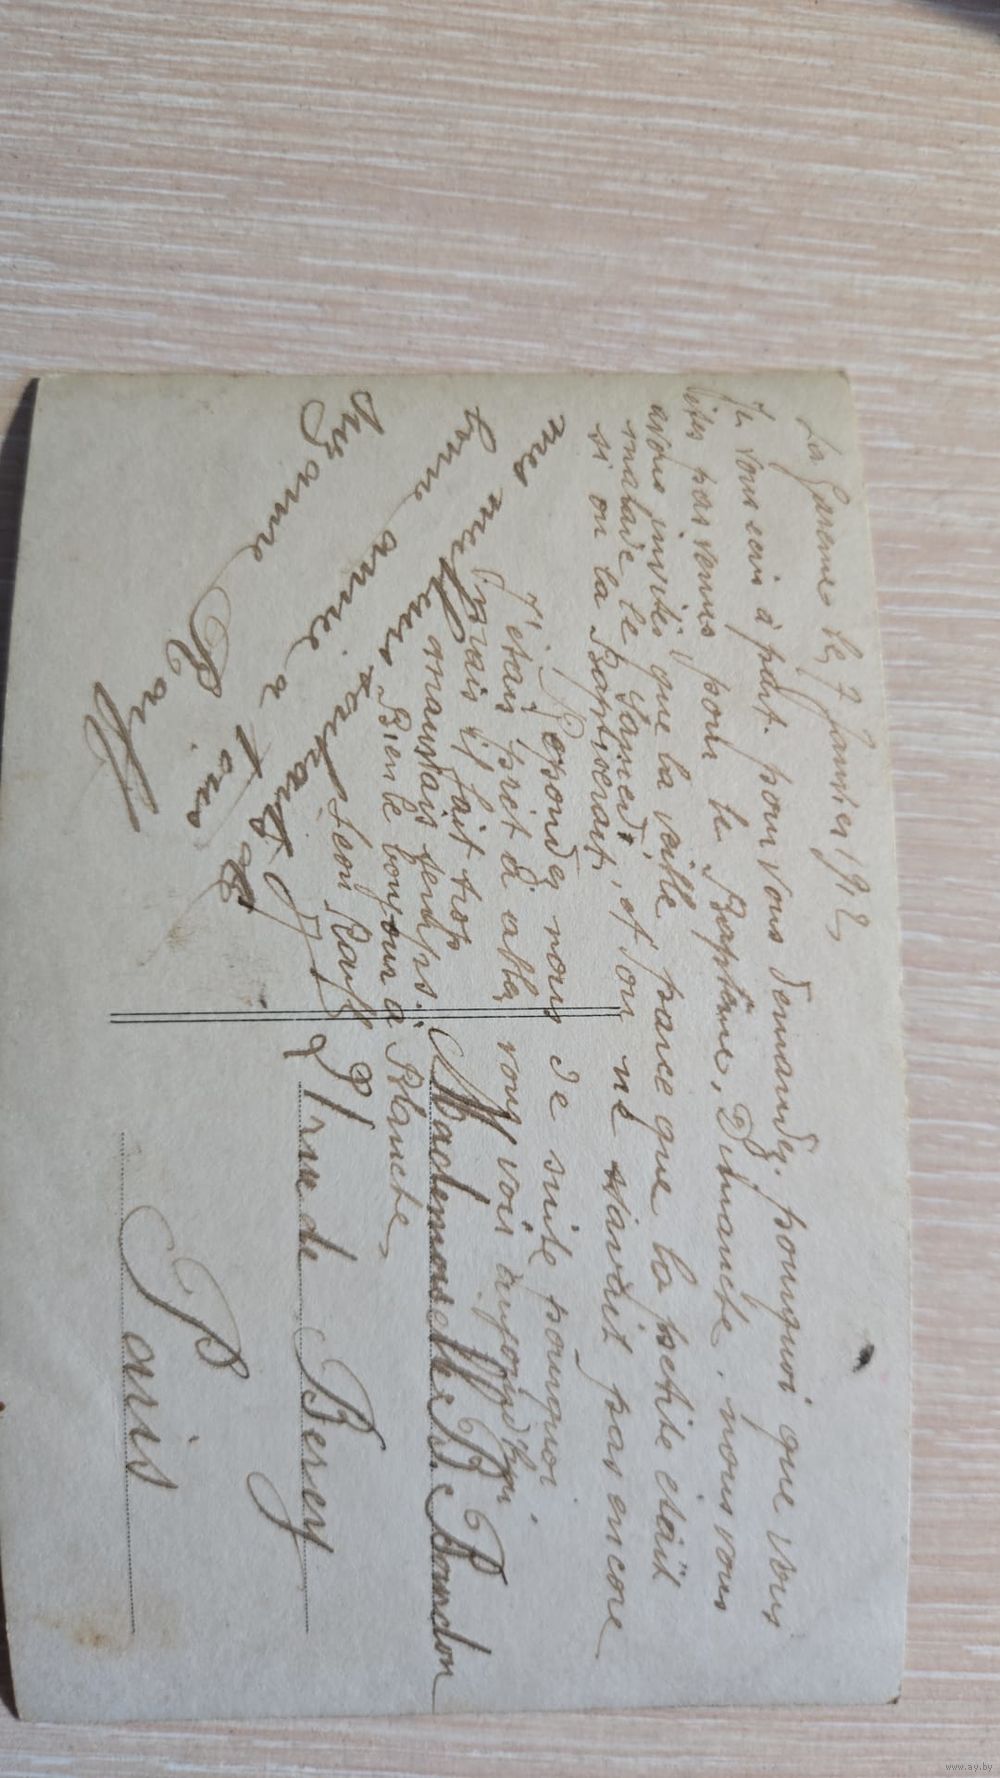 La Garenne le 7 Janvier 1912
Je vous écris à part. pour vous demander. pourquoi que vous
êtes pas venus pour le Baptême, Dimanche. nous vous
avons invités que la veille parce que la petite était
malade le samedi, et on ne savait pas encore
si on la Baptiserait,
Repondez nous de suite pourquoi.
J'étais prêt d'aller vous voir aujourd'hui
mais il fait trop
mauvais temps.
Bien le bonjour à Blanche,
Léon Rauff
mes meilleurs souhaits de
bonne année a tous
Suzanne Rauff
Mademoiselle B. Bandon
9 rue de Bercy
Paris
www.ay.by